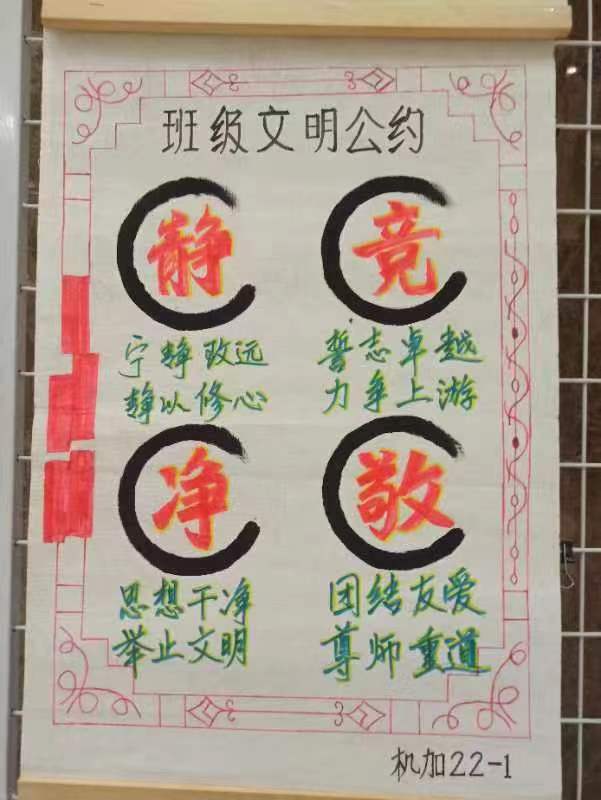 班级文明公约
静
宁静致远
静以修心
竞
誓志卓越
力争上游
净
思想干净
举止文明
敬
团结友爱
尊师重道
机加22-1